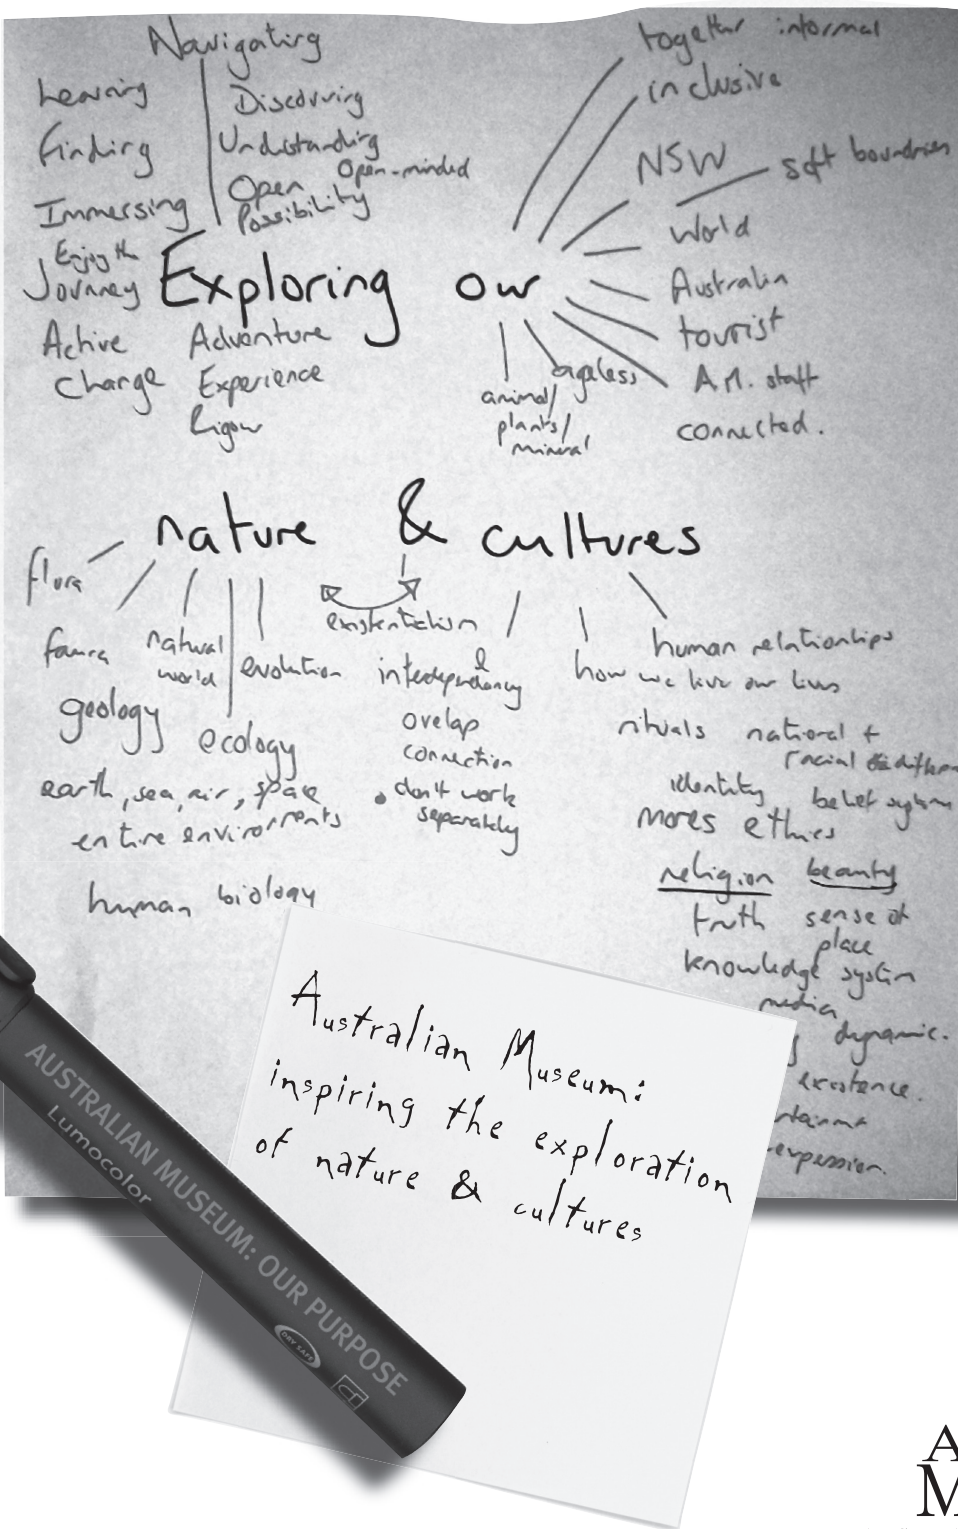 Navigating
Learning
Discovering
Finding
Understanding
Open-minded
Immersing
Open
Possibility
Enjoy the
Journey
Exploring our
Active
Adventure
Change
Experience
Rigour
together informal
inclusive
NSW
soft boundries
World
Australia
tourist
A.M. staff
connected.
ageless
animal/
plants/
mineral
nature & cultures
flora
fauna
natural
world
evolution
geology
ecology
earth, sea, air, space
entire environments
human biology
existentialism
&
interdependancy
ovelap
connection
• don't work
separately
human relationships
how we live our lives
rituals
national +
racial
identity
belief system
mores ethics
religion beauty
truth
sense of
place
knowledge system
media
dynamic.
existence.
expression.
Australian Museum:
inspiring the exploration
of nature & cultures
AUSTRALIAN MUSEUM: OUR PURPOSE
Lumocolor
DRY SAFE
A
M